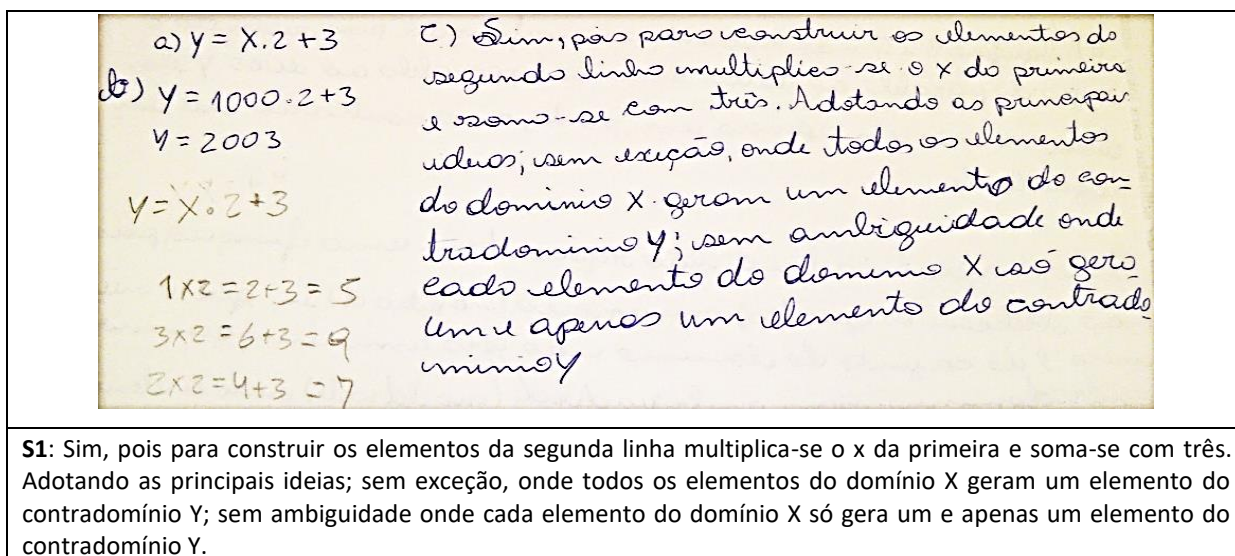 a) y = x.2 +3
b) y = 1000.2+3
y = 2003
y = x.2+3
1x2=2+3 = 5
3x2 =6+3=9
2x2=4+3 =7
C) Sim, pois para construir os elementos da
segunda linha multiplica-se o x da primeira
e soma-se com três. Adotando as principai
ideias; sem exeção, onde todos os elementos
do domínio X geram um elemento do con-
tradominio Y; sem ambiguidade onde
cada elemento do domínio X só gera
um e apenas um elemento do contrado_
minio Y
S1: Sim, pois para construir os elementos da segunda linha multiplica-se o x da primeira e soma-se com três.
Adotando as principais ideias; sem exceção, onde todos os elementos do domínio X geram um elemento do
contradomínio Y; sem ambiguidade onde cada elemento do domínio X só gera um e apenas um elemento do
contradomínio Y.